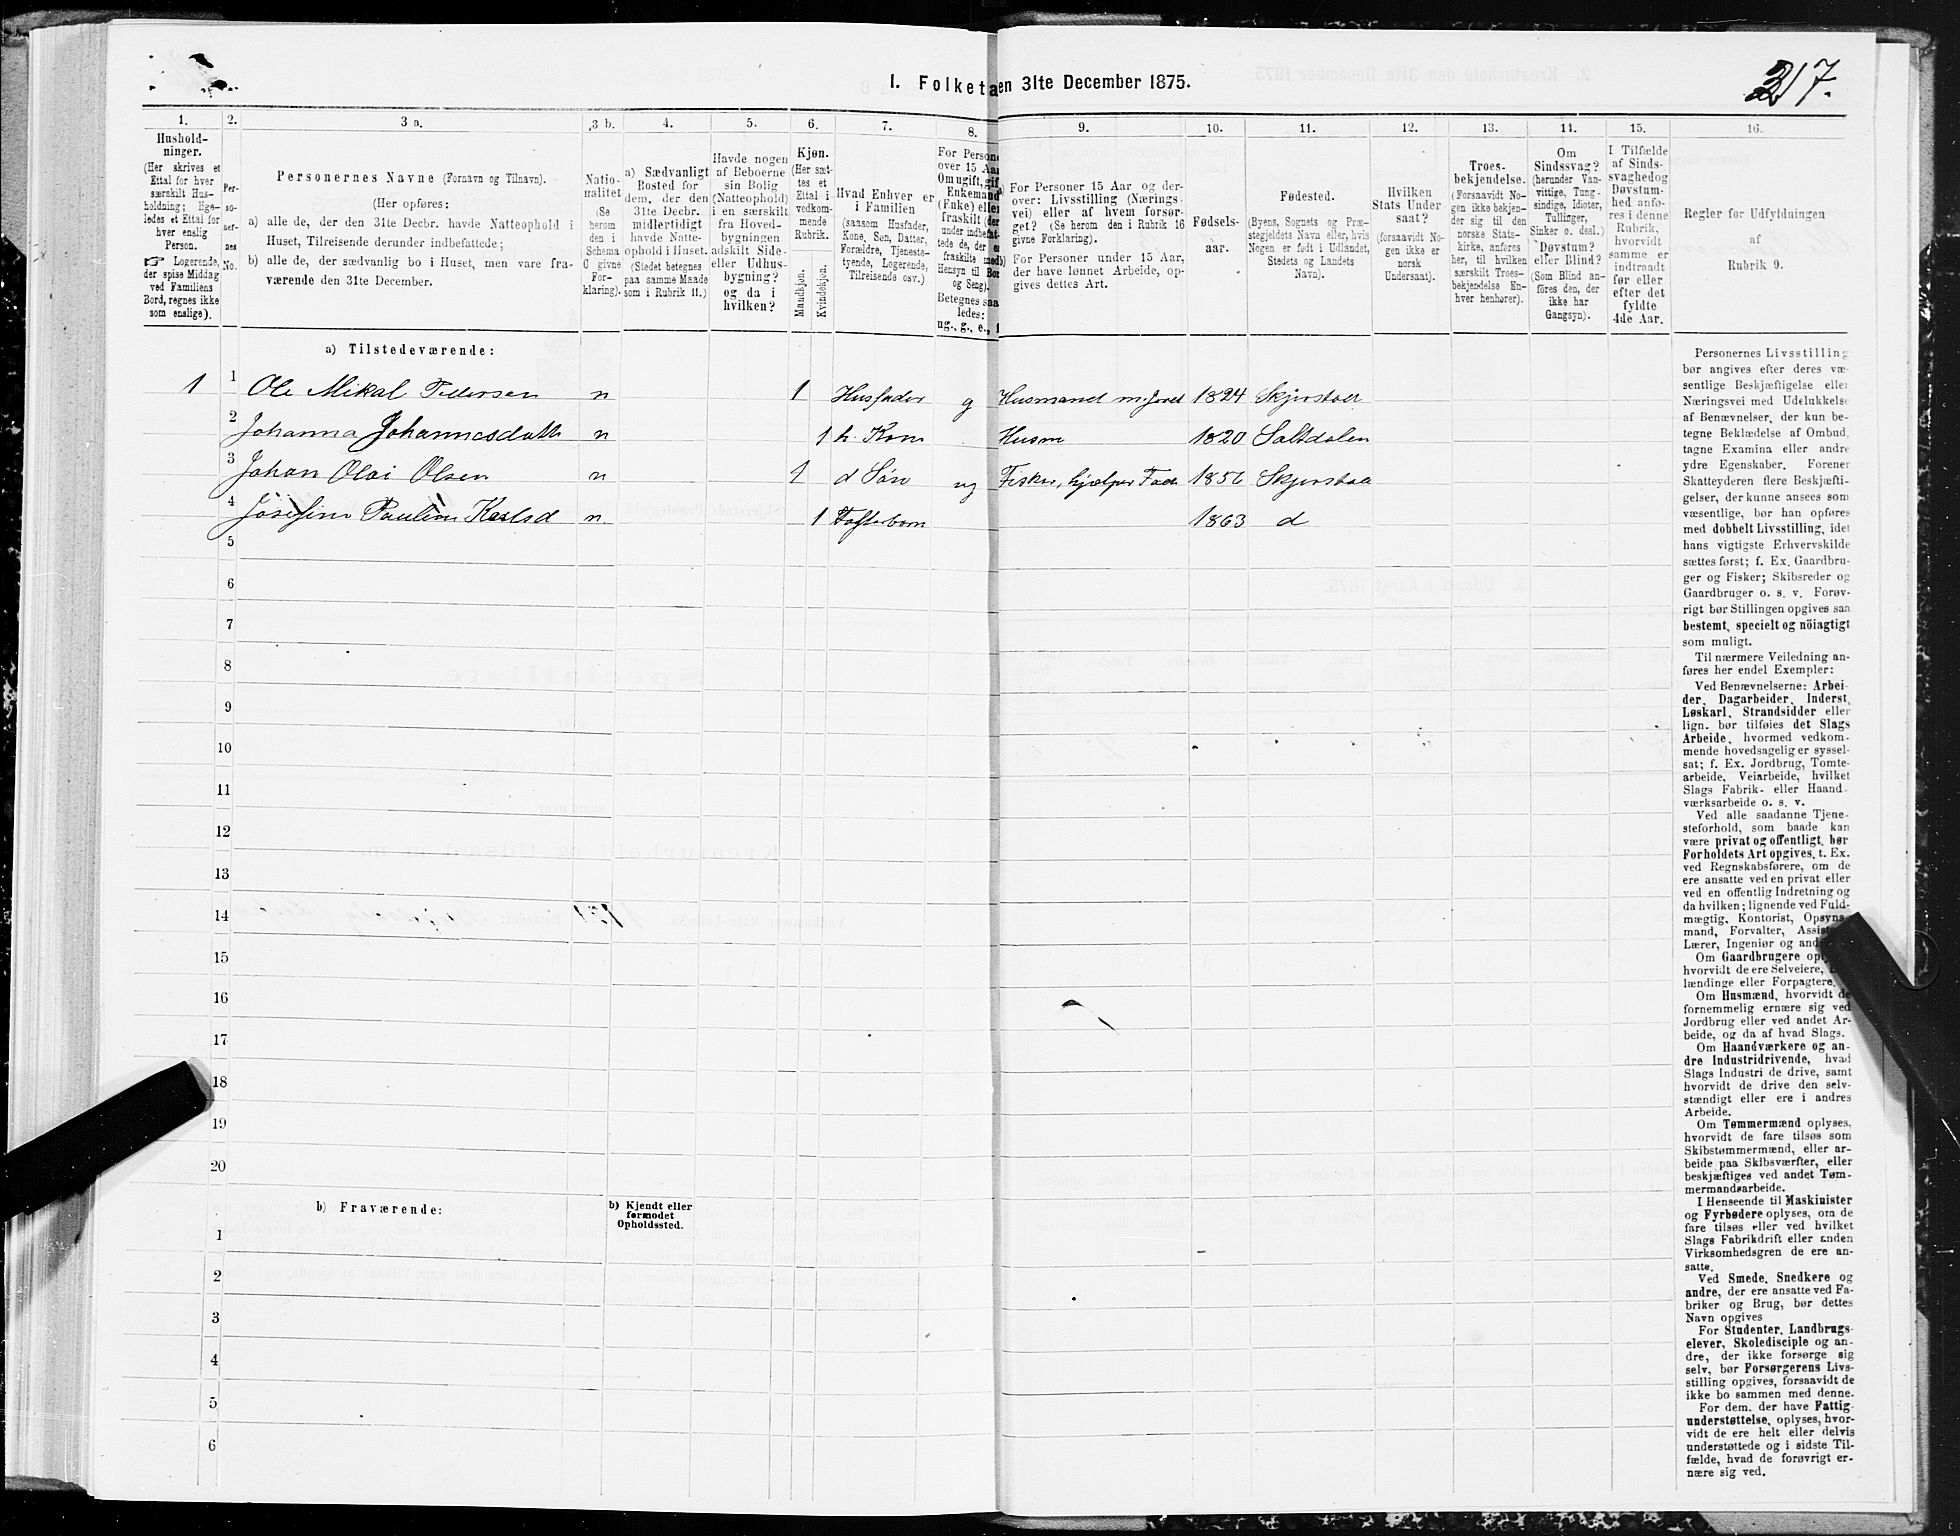 217.
I. Folketa en 31te December 1875.
1. 2. 3 a. 3 b. 4. 5. 6. 7. 8. 9. 10. 11. 12. 13. 14. 15. 16.
Hushold-
ninger.
(Her skrives et
Ettal for hver
særskilt Hus-
holdning; lige-
ledes et Ettal for
hver enslig
Person.
☞ Logerende,
der spise Middag
ved Familiens
Bord, regnes ikke
som enslige).
Per-
so-
ner-
nes
No.
Personernes Navne (Fornavn og Tilnavn).
(Her opføres:
a) alle de, der den 31te Decbr. havde Natteophold i
Huset, Tilreisende derunder indbefattede;
b) alle de, der sædvanlig bo i Huset, men vare fra-
værende den 31te December.
Natio-
nalitet
(Se
herom
den i
Schema
C givne
For-
klaring).
a) Sædvanligt
Bosted for
dem, der den
31te Decbr.
midlertidigt
havde Natte-
ophold i Huset.
(Stedet betegnes
paa samme Maade
som i Rubrik 11.)
Havde nogen
af Beboerne
sin Bolig
(Natteophold)
i en særskilt
fra Hoved-
bygningen
adskilt Side-
eller Udhus-
bygning?
og da i
hvilken?
Kjøn.
(Her sæt-
tes et
Ettal i
vedkom-
mende
Rubrik.
Mandkjøn.
Kvindekjøn.
Hvad Enhver er
i Familien
(saasom Husfader,
Kone, Søn, Datter,
Forældre, Tjeneste-
tyende, Logerende,
Tilreisende osv.)
For Person
over 15 Aar
Om ugift, gif
Enkemand
(Enke) eller
fraskilt (der
under indbefat-
tede de, der e
fraskilte med
Hensyn til Bor
og Seng).
Betegnes saa
ledes:
ug., g., e., f
For Personer 15 Aar og der-
over: Livsstilling (Nærings-
vei) eller af hvem forsør-
get? (Se herom den i Rubrik 16
givne Forklaring).
b) For Personer under 15 Aar,
der have lønnet Arbeide, op-
gives dettes Art.
Fødsels-
aar.
Fødested.
(Byens, Sognets og Præ-
stegjeldets Navn eller, hvis
Nogen er født i Udlandet,
Stedets og Landets
Navn).
Hvilken
Stats Under
saat?
(forsaavidt No-
gen ikke er
norsk
Undersaat).
Troes-
bekjendelse.
(Forsaavidt No-
gen ikke bekjen-
der sig til den
norske Stats-
kirke, anføres
her, til hvilken
særskilt Troes-
bekjendelse En-
hver henhører).
Om
Sindssvag?
(herunder Van-
vittige, Tung-
sindige, Idioter,
Tullinger,
Sinker o. desl.)
Døvstum?
eller Blind?
(Som Blind an-
føres den, der
ikke har
Gangsyn).
I Tilfælde
af Sinds-
svaghed og
Døvstum-
hed anfø-
res i denne
Rubrik,
hvorvidt
samme er
indtraadt
før eller
efter det
fyldte
4de Aar.
Regler for Udfyldningen
af
Rubrik 9.
a) Tilstedeværende:
1 1 Ole Mikal Pedersen n 1 Husfader g Husmand m. Jord 1824 Skjerstad
2 Johanna Johannesdatt n 1 h. Kone Husm 1820 Saltdalen
3 Johan Olai Olsen n 1 d Søn ug Fisker, hjælper Fad 1856 Skjerstad
4 Josefine Pauline Karlsd n. 1 Fosterbarn 1863 d
5
6
7
8
9
10
11
12
13
14
15
16
17
18
19
20
b) Fraværende:
b) Kjendt eller
formodet
Opholdssted.
1
2
3
4
5
6
Personernes Livsstilling
bør angives efter deres væ-
sentlige Beskjæftigelse eller
Næringsvei med Udelukkelse
af Benævnelser, der kun be-
tegne Beklædelse af Ombud,
tagne Examina eller andre
ydre Egenskaber. Forener
Skatteyderen flere Beskjæfti-
gelser, der kunne ansees som
væsentlige, bør han opføres
med dobbelt Livsstilling, idet
hans vigtigste Erhvervskilde
sættes først; f. Ex. Gaardbru-
ger og Fisker; Skibsreder og
Gaardbruger o. s. v. Forøv-
rigt bør Stillingen opgives saa
bestemt, specielt og nöiagtigt
som muligt.
Til nærmere Veiledning an-
føres her endel Exempler:
Ved Benævnelserne: Arbei-
der, Dagarbeider, Inderst,
Løskarl, Strandsidder eller
lign. bør tilføies det Slags
Arbeide, hvormed vedkom-
mende hovedsagelig er syssel-
sat; f. Ex. Jordbrug, Tomte-
arbeide, Veiarbeide, hvilket
Slags Fabrik- eller Haand-
værksarbeide o. s. v.
Ved alle saadanne Tjene-
steforhold, som baade kan
være privat og offentligt, bør
Forholdets Art opgives, t. Ex.
ved Regnskabsførere, om de
ere ansatte ved en privat eller
ved en offentlig Indretning og
da hvilken; lignende ved Fuld-
mægtig, Kontorist, Opsyns-
mand, Forvalter, Assist
Lærer, Ingeniør og and
Om Gaardbrugere opl
hvorvidt de ere Selveiere,
lændinge eller Forpagtere.
Om Husmænd, hvorvidt de
fornemmelig ernære sig ved
Jordbrug eller ved andet Ar-
beide, og da af hvad Slags.
Om Haandværkere og an-
dre Industridrivende, hvad
Slags Industri de drive, samt
hvorvidt de drive den selv-
stændigt eller ere i andres
Arbeide.
Om Tømmermænd oplyses,
hvorvidt de fare tilsøs som
Skibstømmermænd, eller ar-
beide paa Skibsværfter, eller
beskjæftiges ved andet Tøm-
mermandsarbeide.
I Henseende til Maskinister
og Fyrbødere oplyses, om de
fare tilsøs eller ved hvilket
Slags Fabrikdrift eller anden
Virksomhedsgren de ere an-
satte.
Ved Smede, Snedkere og
andre, der ere ansatte ved Fa-
briker og Brug, bør dettes
Navn opgives
For Studenter, Landbrugs-
elever, Skoledisciple og an-
dre, der ikke forsørge sig
selv, bør Forsørgerens Livs-
stilling opgives, forsaavidt de
ikke bo sammen med denne.
For dem, der have Fattig-
understøttelse, oplyses, hvor-
vidt de ere helt eller delvis
understøttede og i sidste Til-
fælde, hvad de forøvrigt er-
nære sig ved.